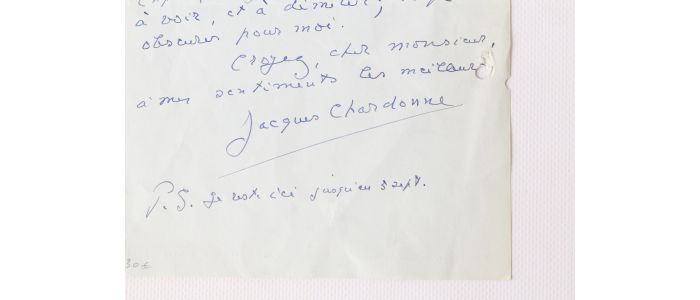 à voir, et à démêler,
obscures pour moi.
Croyez, cher monsieur,
à mes sentiments les meilleurs
Jacques Chardonne
P.S. Je reste ici jusqu'au 5 sept.
30€